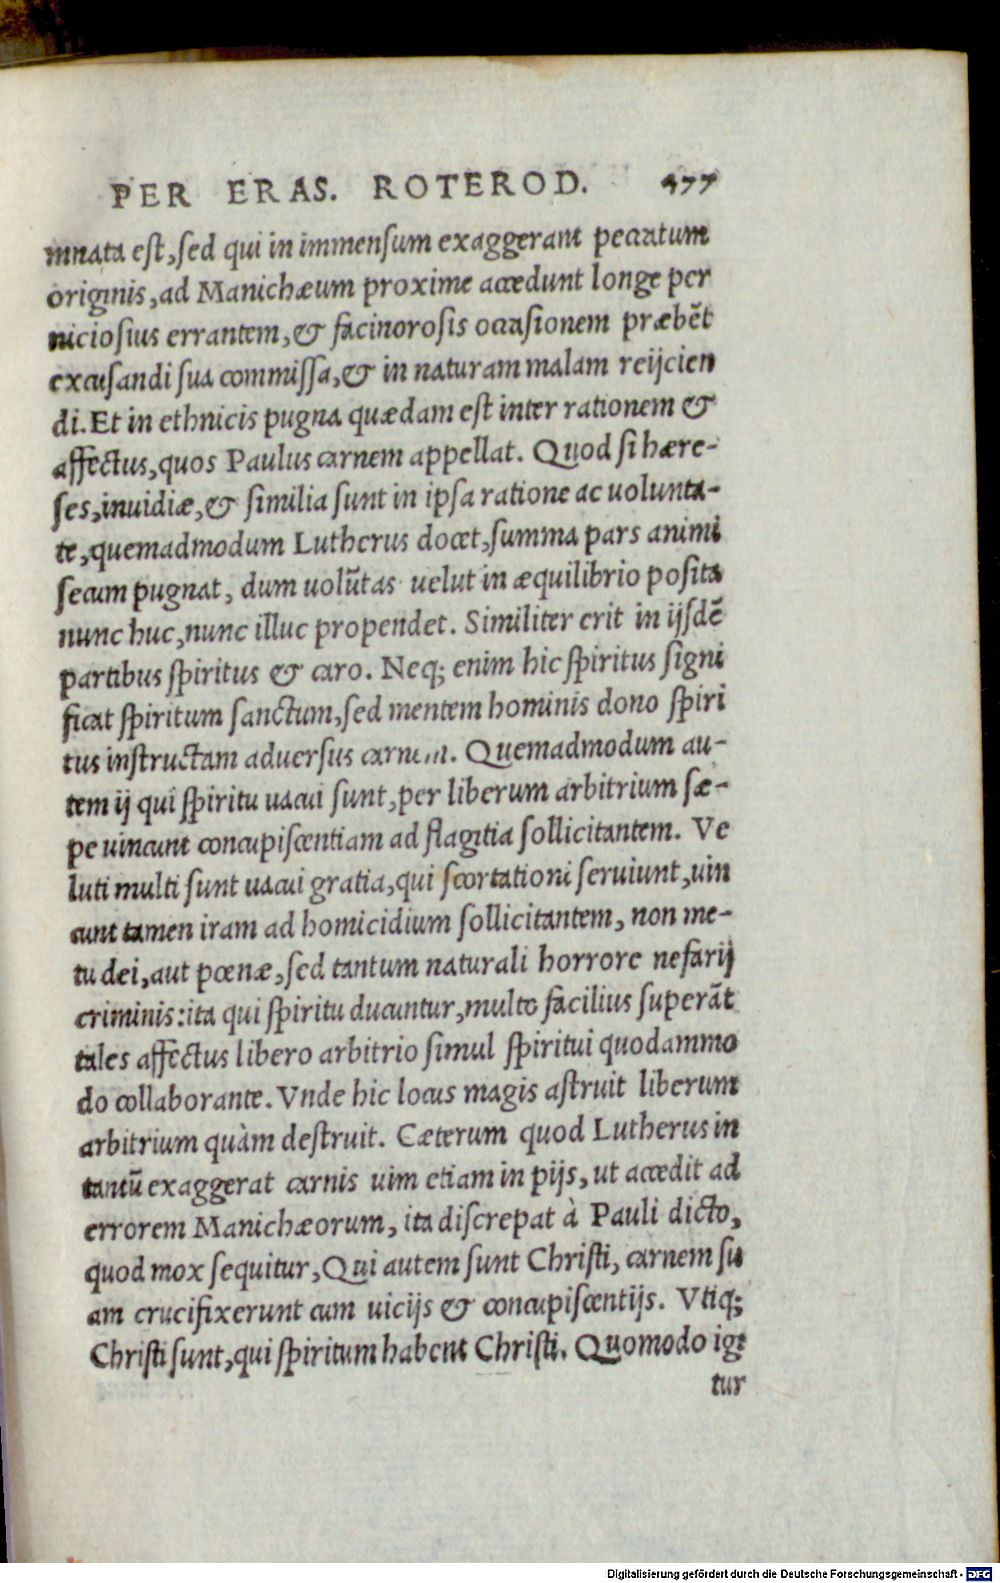 PER ERAS. ROTEROD. 477
mnata est, sed qui in immensum exaggerant peccatum
originis, ad Manichæum proxime accedunt longe per
niciosius errantem, & facinorosis occasionem præbēt
excusandi sua commissa, & in naturam malam reijcien
di. Et in ethnicis pugna quædam est inter rationem &
affectus, quos Paulus carnem appellat. Quod si hære-
ses, inuidiæ, & similia sunt in ipsa ratione ac uolunta-
te, quemadmodum Lutherus docet, summa pars animi
secum pugnat, dum uolūtas uelut in æquilibrio posita
nunc huc, nunc illuc propendet. Similiter erit in ijsdē
partibus spiritus & caro. Neq; enim hic spiritus signi
ficat spiritum sanctum, sed mentem hominis dono spiri
tus instructam aduersus carnem. Quemadmodum au-
tem ij qui spiritu uacui sunt, per liberum arbitrium sæ-
pe uincunt concupiscentiam ad flagitia sollicitantem. Ve
luti multi sunt uacui gratia, qui scortationi seruiunt, uin
cunt tamen iram ad homicidium sollicitantem, non me-
tu dei, aut pœnæ, sed tantum naturali horrore nefarij
criminis: ita qui spiritu ducuntur, multo facilius superāt
tales affectus libero arbitrio simul spiritui quodammo
do collaborante. Vnde hic locus magis astruit liberum
arbitrium quàm destruit. Cæterum quod Lutherus in
tantū exaggerat carnis uim etiam in pijs, ut accedit ad
errorem Manichæorum, ita discrepat à Pauli dicto,
quod mox sequitur, Qui autem sunt Christi, carnem su
am crucifixerunt cum uicijs & concupiscentijs. Vtiq;
Christi sunt, qui spiritum habent Christi. Quomodo igi
tur
Digitalisierung gefördert durch die Deutsche Forschungsgemeinschaft - DFG